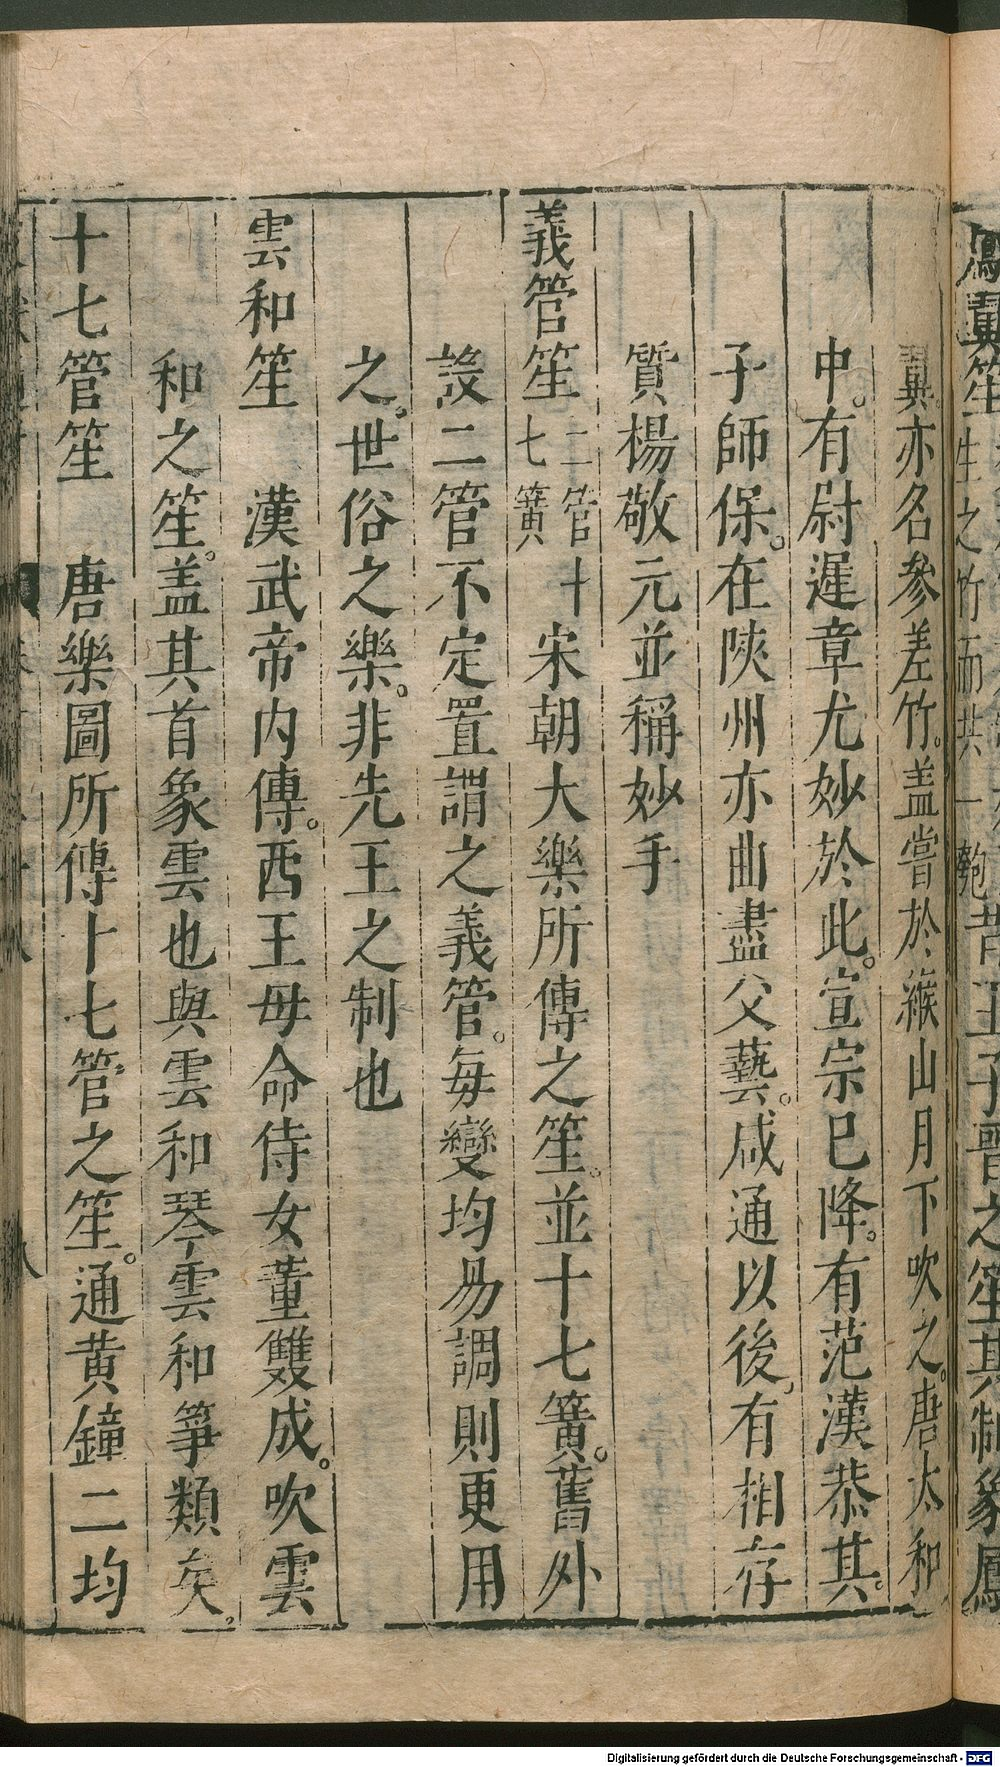 鳳翼笙生之竹而共一匏昔王子晉之笙其制象鳳
翼亦名參差竹。盖嘗於緱山月下吹之。唐太和
中。有尉遲章尤妙於此。宣宗已降。有范漢恭。其
子師保。在陝州亦曲盡父藝。咸通以後。有相存
質楊敬元並稱妙手
義管笙二管十七簧 宋朝大樂所傳之笙。並十七簧。舊外
設二管不定置謂之義管。每變均易調則更用
之。世俗之樂。非先王之制也
雲和笙 漢武帝内傳。西王母命侍女董雙成。吹雲
和之笙。盖其首象雲也與雲和琴雲和箏類矣。
十七管笙 唐樂圖所傳十七管之笙。通黄鐘二均
Digitalisierung gefördert durch die Deutsche Forschungsgemeinschaft - DFG